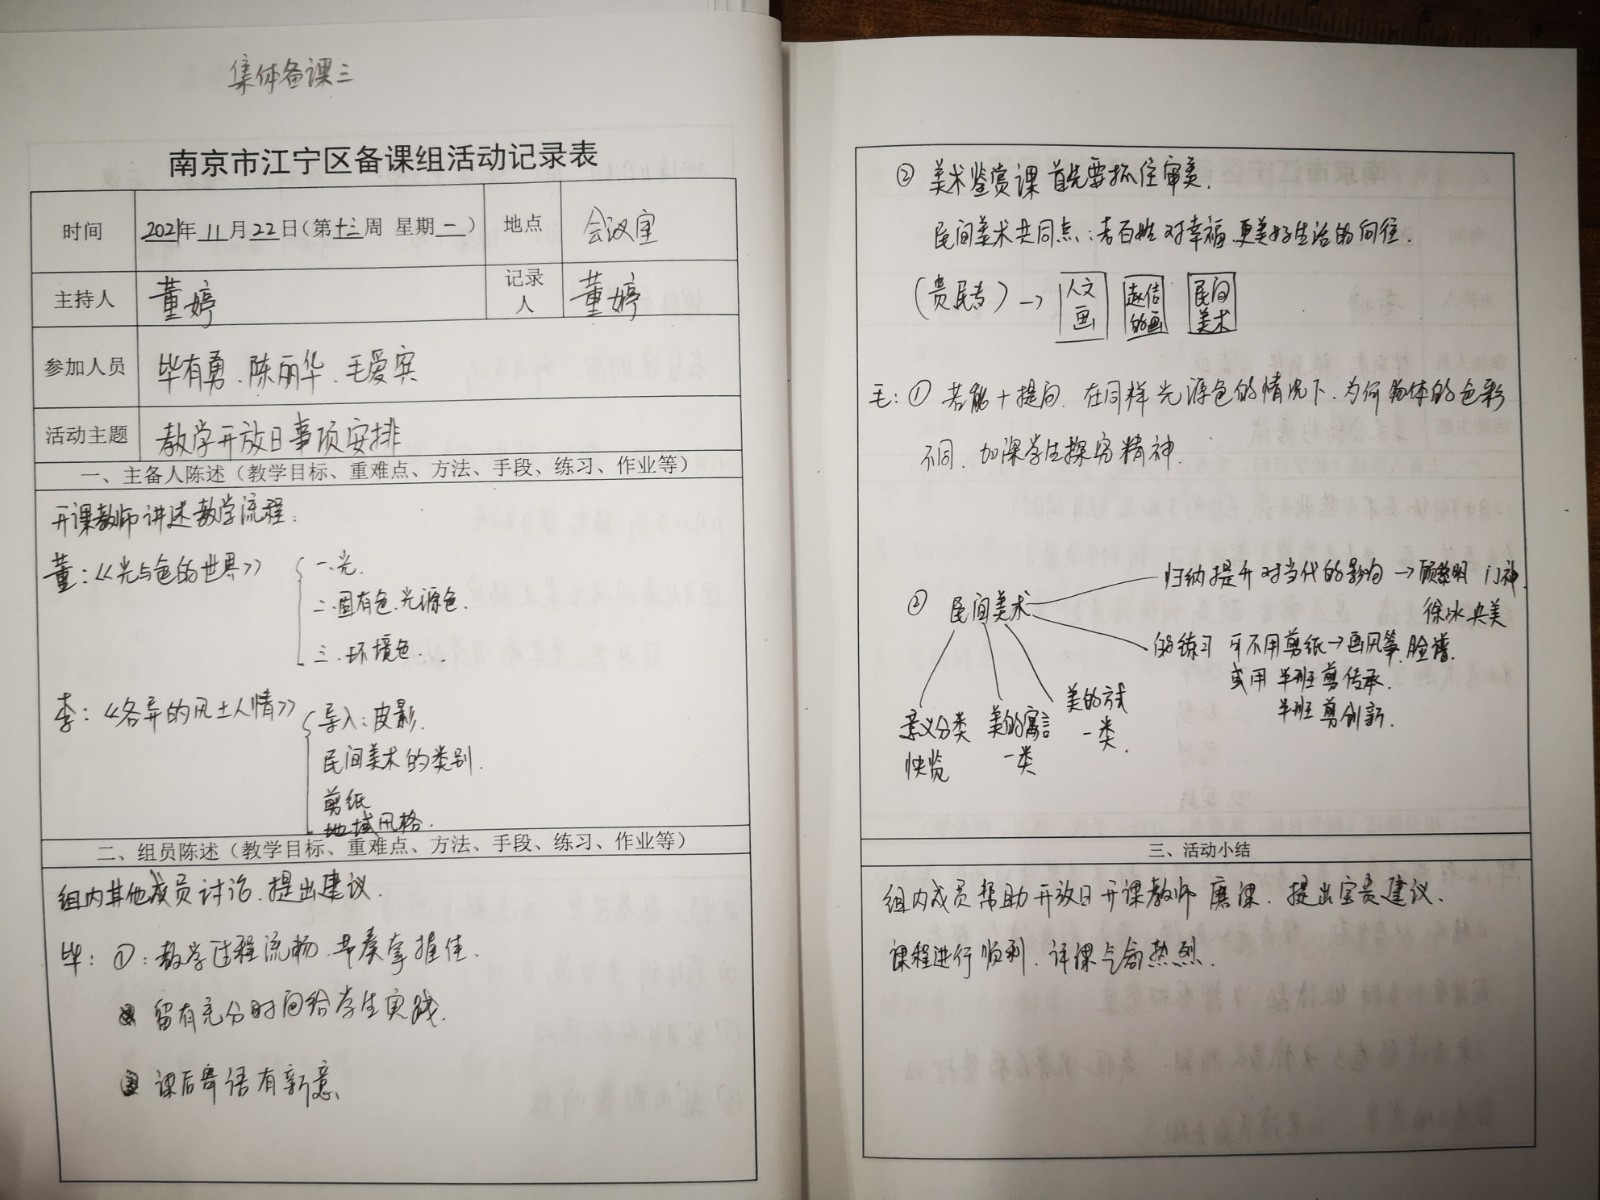 集体备课三
南京市江宁区备课组活动记录表
时间 2021年11月22日(第十三周 星期一) 地点 会议室
主持人 董婷 记录人 董婷
参加人员 毕有勇、陈丽华、毛爱宾
活动主题 教学开放日事项安排
一、主备人陈述（教学目标、重难点、方法、手段、练习、作业等）
开课教师讲述教学流程：
董：《光与色的世界》 一.光.
二.固有色.光源色.
三.环境色.
李：《各异的风土人情》 导入：皮影.
民间美术的类别.
剪纸
地域风格.
二、组员陈述（教学目标、重难点、方法、手段、练习、作业等）
组内其他成员讨论.提出建议.
毕：①：教学过程流畅.节奏拿握佳.
② 留有充分时间给学生实践.
③ 课后寄语有新意.
② 美术鉴赏课首先要抓住审美.
民间美术共同点：老百姓对幸福更美好生活的向往.
(贵民专) → 人文画 赵佶的画 民间美术
毛：① 若能+提问.在同样光源色的情况下.为何物体的色彩
不同.加深学生探究精神.
② 民间美术
归纳提升对当代的影响 → 门神.
徐冰 央美
的练习 可不用剪纸→画风筝.脸谱.
或用 半班剪传承.
半班剪创新.
意义分类
快览
美的寓言
一类
美的方式
一类.
三、活动小结
组内成员帮助开放日开课教师磨课.提出宝贵建议.
课程进行顺利.评课气氛热烈.